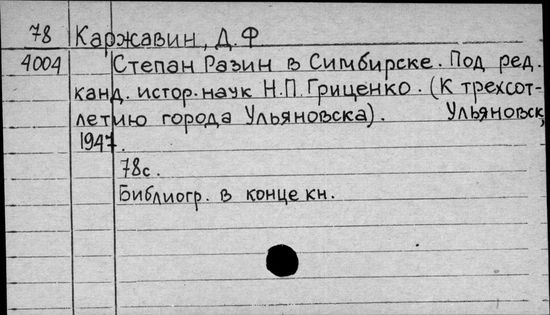 78 Каржавин, Д.Ф
4004 Степан Разин в Симбирске. Под ред.
канд. истор. наук Н.П. Гриценко. (К трехсот-
летию города Ульяновска). Ульяновск,
1947.
78с.
Библиогр. в конце кн.